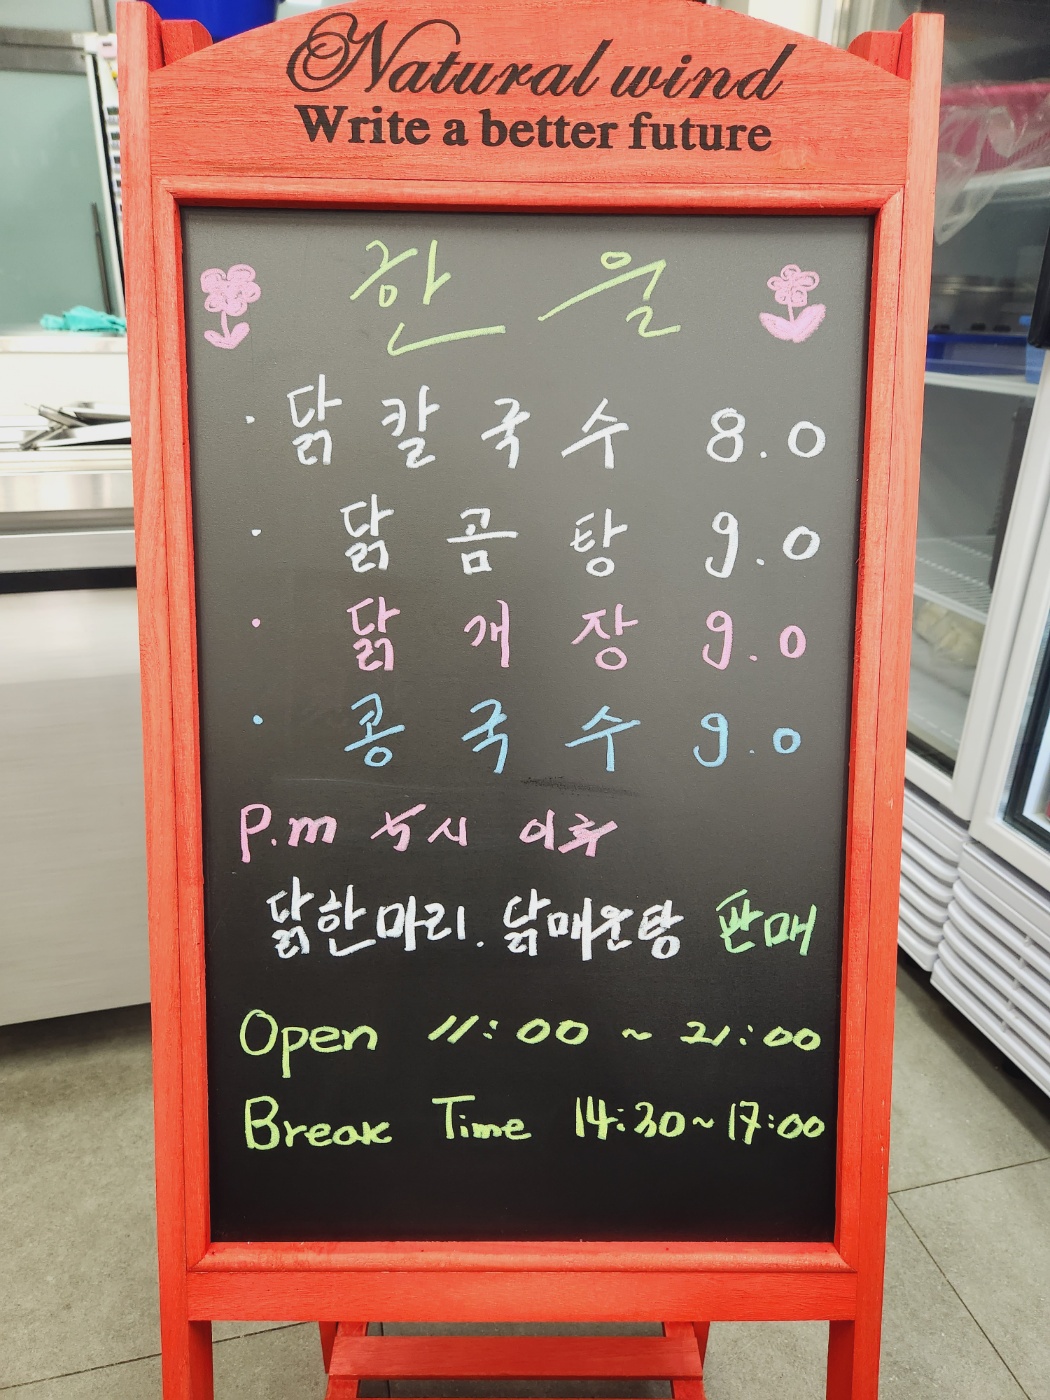 Natural wind
Write a better future
한 울
· 닭 칼 국 수 8.0
· 닭 곰 탕 9.0
· 닭 개 장 9.0
· 콩 국 수 9.0
P.m 5시 이후
닭한마리. 닭매운탕 판매
Open 11:00 ~ 21:00
Break Time 14:30~17:00